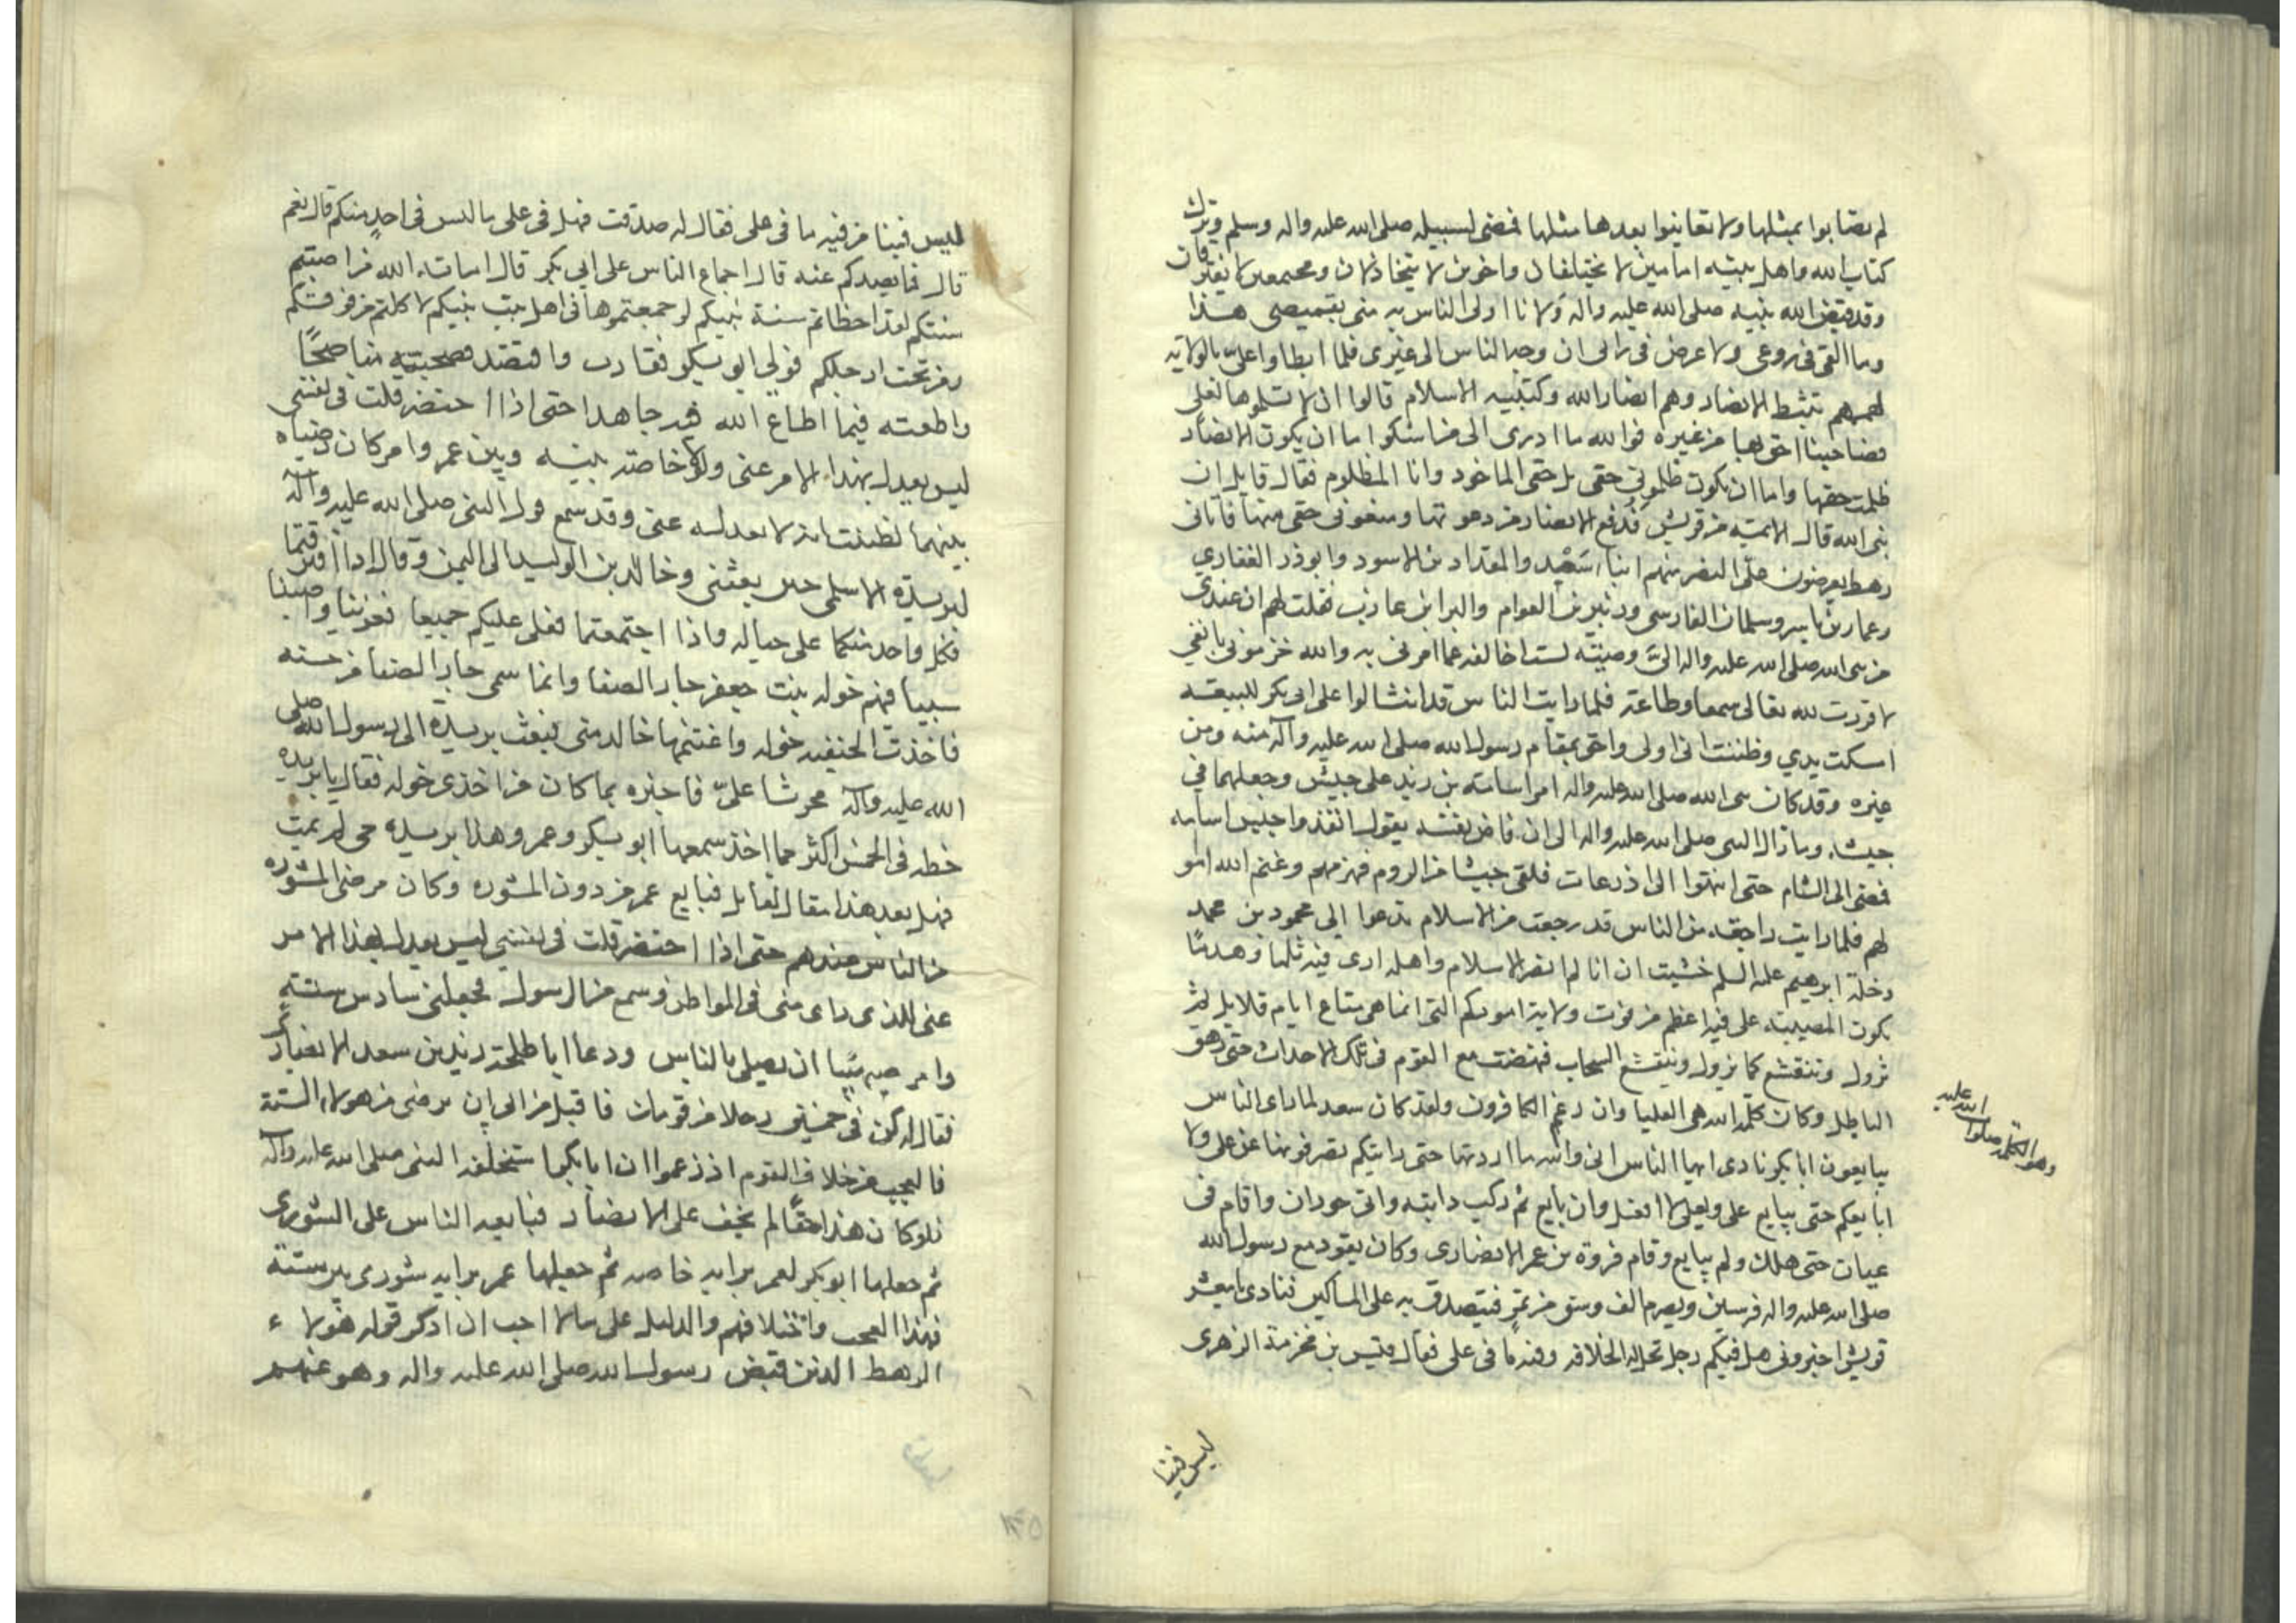 لم يصابوا بمثلها ولا تعاينوا بعدها مثلها فمضى لسبيله صلى الله عليه واله وسلم وترك
كتاب الله واهل بيته امامين لا يختلفان واخوين لا يتخاذلان ومجتمعين لا يفترقان
وقد قبض الله نبيه صلى الله عليه واله ولانا اولى الناس به منى بقميصى هذا
وما القى فى روعى ولا عرض فى رائى ان وجه الناس الى غيرى فلما ابطاوا على بالولاية
لهممهم وتثبط الانصار وهم انصار الله وكتيبة الاسلام قالوا اذ لم تسلموها لعلى
فصاحبنا احق بها من غيره فوالله ما ادرى الى من اشكو اما ان يكون الانصار
ظلمت حقها واما ان يكون ظلمونى حقى بل حقى الماخوذ وانا المظلوم فقال قايل ان
نبى الله قال الائمة من قريش فدفع الانصار من دعوتها ومنعونى حقى منها فاتانى
رهط يعرضون على النصر منهم ابنا سعيد والمقداد بن الاسود وابوذر الغفارى
وعمار بن ياسر وسلمان الفارسى وزبير بن العوام والبرا بن عازب فقلت لهم ان عندى
من نبى الله صلى الله عليه واله الى وصية لست اخالفه عما امرنى به والله لو خزمونى بانفى
لاقررت لله تعالى سمعا وطاعة فلما رايت الناس قد انثالوا على ابى بكر للبيعة
امسكت يدي وظننت انى اولى واحق بمقام رسول الله صلى الله عليه وآله منه ومن
غيره وقد كان نبى الله صلى الله عليه واله امر اسامة بن زيد على جيش وجعلهما فى
جيشه وما زال النبى صلى الله عليه واله الى ان فاض نفسه يقول انفذوا جيش اسامه
فمضى الى الشام حتى انتهوا الى اذرعات فلقى جيشا من الروم فهزمهم وغنم الله امو
لهم فلما رايت راجعة من الناس قد رجعت من الاسلام تدعوا الى محو دين محمد
وخلة ابرهيم عليه السلم خشيت ان انا لم انصر الاسلام واهله ارى فيه ثلما وهدمًا
يكون المصيبة على فيه اعظم من فوت ولاية اموركم التى انما هى متاع ايام قلايل ثم
تزول وتنقشع كما يزول وينقشع السحاب فنهضت مع القوم فى تلك الاحداث حتى زهق
الباطل وكان كلمة الله هى العليا وان رغم الكافرون ولقد كان سعد لما راى الناس
يبايعون ابا بكر نادى ايها الناس انى والله ما اردتها حتى رايتكم تصرفونها عن على ولا
ابايعكم حتى يبايع على ولعلى لا افعل وان بايع ثم ركب دابته واتى حوران واقام فى
عيان حتى هلك ولم يبايع وقام فروة بن عمر الانصارى وكان يقود مع رسول الله
صلى الله عليه واله فرسين ويصرم الف وسق من تمر فيتصدق به على المساكين فنادى يا معشر
قريش اخبرونى هل فيكم رجل تحل له الخلافه وفيه ما فى على فقال قيس بن مخزمة الزهرى
وهو الكلمه صلوات الله عليه
ليس فينا
ليس فينا من فيه ما فى على فقال له صدقت فهل فى على ما ليس فى احد منكم قال نعم
قال فما يصدكم عنه قال اجماع الناس على ابى بكر قال اما والله لئن اصبتم
سنتكم لقد اخطاتم سنة نبيكم لو جمعتموها فى اهل بيت نبيكم لاكلتم من فوقكم
ومن تحت ارجلكم فولى ابو بكر فقارب واقتصد فصحبته مناصحًا
واطعته فيما اطاع الله فيه جاهدا حتى اذا احتضر قلت فى نفسى
ليس يعدل بهذا الامر عنى ولولا خاصة بينه وبين عمر وامر كان رضياه
بينهما لظننت انه لا يعدله عنى وقد سمع قول النبى صلى الله عليه وآله
لبريدة الاسلمى حين بعثنى وخالد بن الوليد الى اليمن وقال اذا افترقتما
فكل واحد منكما على حياله واذا اجتمعتما فعلى عليكم جميعا فغزينا واصبنا
سبيا فيهم خوله بنت جعفر جار الصفا وانما سمى جار الصفا من حسنه
فاخذت الحنفيه خوله واغتنمها خالد منى فبعث بريدة الى رسول الله صلى
الله عليه وآله محرشا على فاخبره بما كان من اخذى خوله فقال يا بريده
حظه فى الخمس اكثر مما اخذ سمعها ابو بكر وعمر وهذا بريدة حى لم يمت
فهل بعد هذا مقال لقايل فبايع عمر من دون المشوره وكان مرضى المشوره
من الناس عندهم حتى اذا احتضر قلت فى نفسى ليس يعدل بهذا الامر
عنى للذى راى منى فى المواطن وسمع من الرسول فجعلنى سادس ستة
وامر صهيبًا ان يصلى بالناس ودعا ابا طلحة زيد بن سعد الانصارى
فقال له كن فى خمسين رجلا من قومك فاقتل من ابى ان يرضى من هولاء الستة
فالعجب من خلاف القوم اذ زعموا ان ابا بكر استخلفه النبى صلى الله عليه وآله
فلو كان هذا حقًا لم يخف على الانصار فبايعه الناس على الشورى
ثم جعلها ابو بكر لعمر برايه خاصه ثم جعلها عمر برايه شورى بين ستة
فهذا العجب واختلافهم والدليل على ما لا احب ان اذكر قوله هولاء
الرهط الذين قبض رسول الله صلى الله عليه واله وهو عنهم